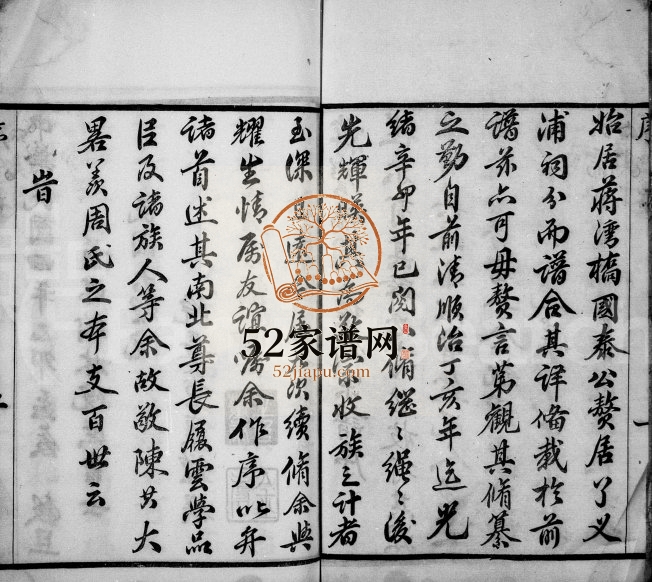 序
始居蔣灣橋國泰公贅居了义
浦祠分而譜合其详俻載扵前
譜茲亦可毋贅言第觀其脩纂
之勤自前清順治丁亥年迄光
緒辛卯年已閱脩継〻繩〻後
先輝暎其收族之計者
玉深次續脩余與
耀生情属友誼嘱余作序以弁
諸首述其南北尊長履雲学品
臣及諸族人等余故敬陳其大
畧羡周氏之夲支百世云
旹
52家谱网
52jiapu.com